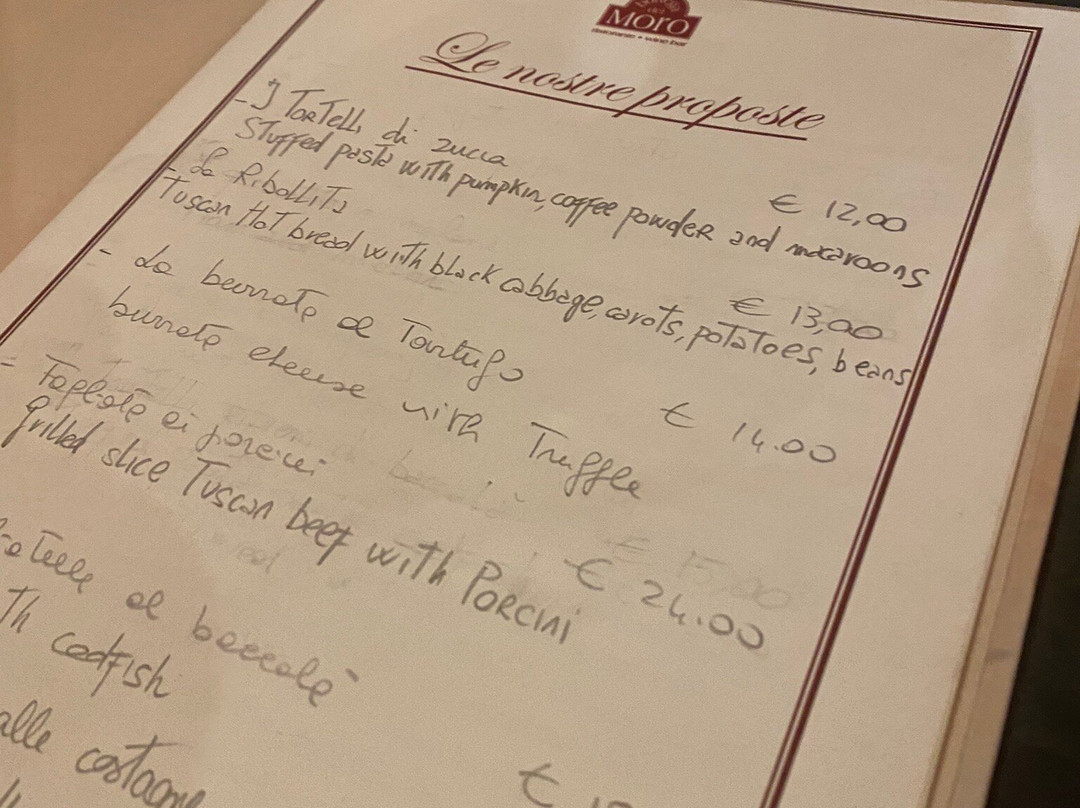 MORO
Le nostre proposte
- I TORTELLI di zucca € 12,00
Stuffed pasta with pumpkin, coffee powder and macaroons
- La RiboLLiTa € 13,00
Tuscan Hot bread with black cabbage, carots, potatoes, beans
- La burrata al Tartufo € 14.00
burrata cheese with Truffle
- Tagliata ai porcini € 24.00
Grilled slice Tuscan beef with PORCINI
al baccalà
Th codfish
alle castagne
€